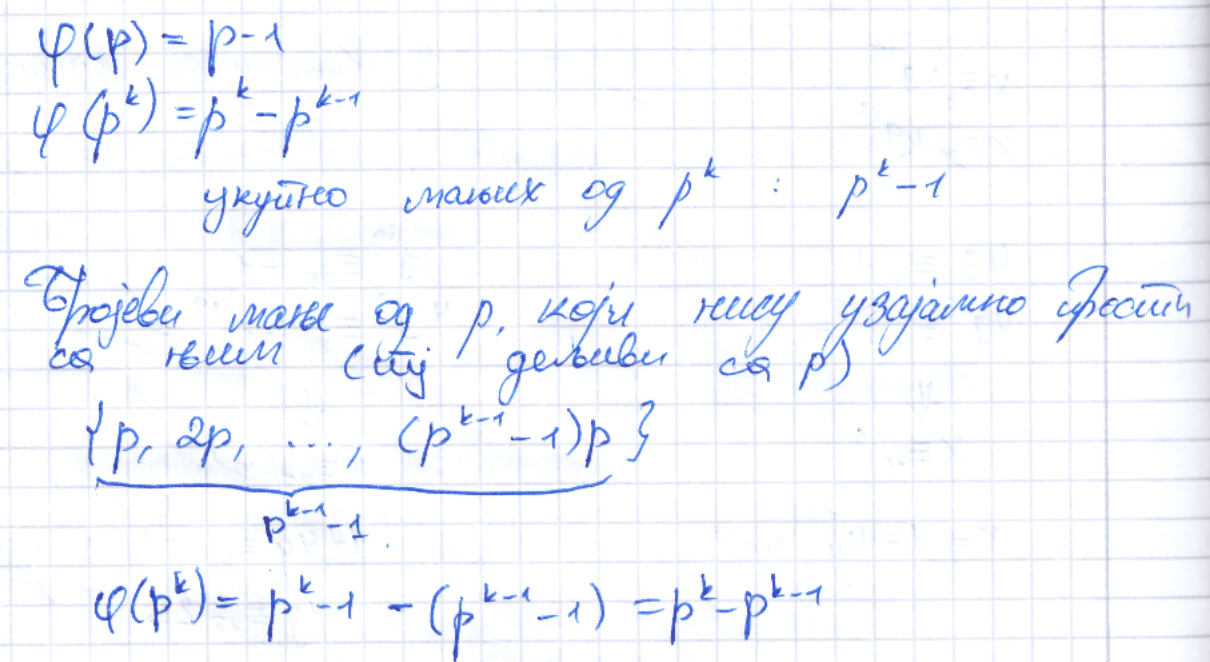 φ(p) = p-1
φ(p^k) = p^k - p^{k-1}
укупно мањих од p^k : p^k - 1
Бројеви мање од p, који нису узајамно прости
са њим (тј дељиви са p)
{p, 2p, ..., (p^{k-1} - 1)p}
p^{k-1} - 1
φ(p^k) = p^k - 1 - (p^{k-1} - 1) = p^k - p^{k-1}